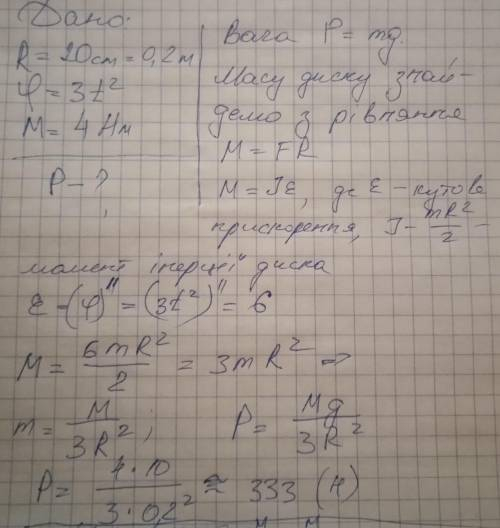 Дано:
R = 20см = 0,2м
φ = 3t²
M = 4 Нм
P - ?
Вага P = mg.
Масу диску знай-
демо з рівняння
M = FR
M = Jε, де ε - кутове
прискорення, J - mR²/2 -
момент інерції диска
ε - (φ)" = (3t²)" = 6
M = 6mR²/2 = 3mR² ⇒
m = M/3R² ; P = Mg/3R²
P = 4·10/3·0,2² ≈ 333 (Н)